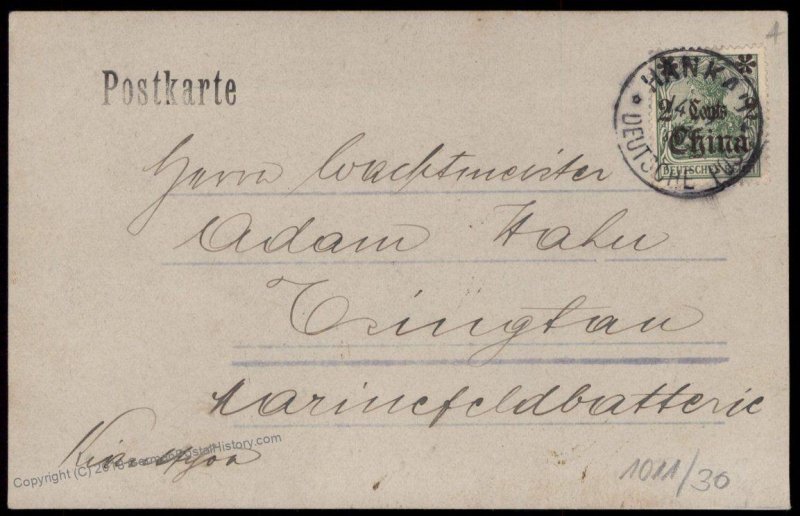 4
Postkarte
* HANKAU *
DEUTSCHE POST
2 Cents
China
DEUTSCHES
Herrn Wachtmeister
Adam Hahn
Tsingtau
Marinefeldbatterie
Kiautschou
Copyright (C) 2018 GermanPostalHistory.com
1011/30